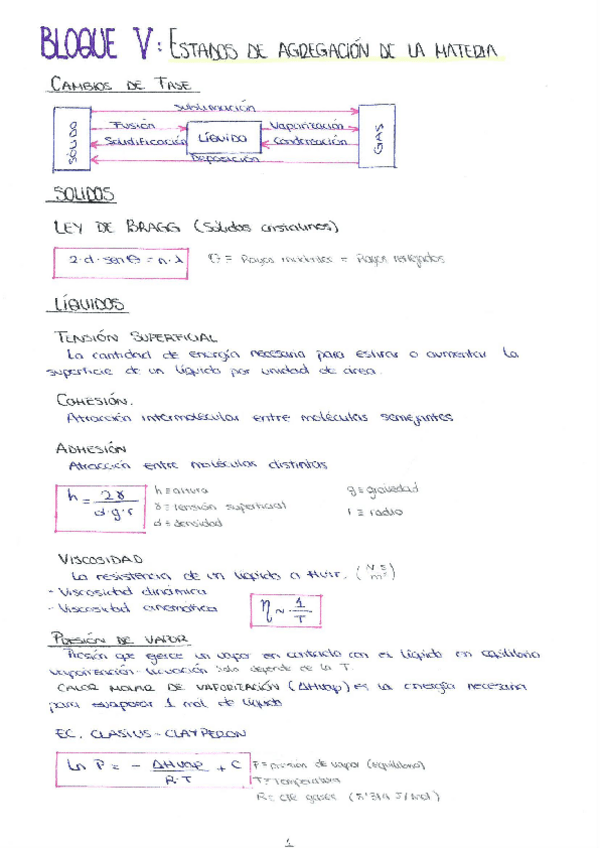 BLOQUE V: ESTADOS DE AGREGACIÓN DE LA MATERIA
CAMBIOS DE FASE
Sublimación
SÓLIDO
Fusión
LÍQUIDO
Vaporización
GAS
Solidificación
Condensación
Deposición
SOLIDOS
LEY DE BRAGG (Sólidos cristalinos)
2·d·senθ = n·λ
θ = Rayos incidentes = Rayos reflejados
LÍQUIDOS
TENSIÓN SUPERFICIAL
La cantidad de energía necesaria para estirar o aumentar la
superficie de un líquido por unidad de área.
COHESIÓN.
Atracción intermolecular entre moléculas semejantes
ADHESIÓN
Atracción entre moléculas distintas
h = 2γ / d·g·r
h = altura
γ = tensión superficial
d = densidad
g = gravedad
r = radio
VISCOSIDAD
La resistencia de un líquido a fluir. (N·s/m²)
- Viscosidad dinámica
- Viscosidad cinemática
η ~ 1/T
PRESIÓN DE VAPOR
Presión que ejerce un vapor en contacto con el líquido en equilibrio
vaporización - Solo depende de la T.
CALOR MOLAR DE VAPORIZACIÓN (ΔHvap) es la energía necesaria
para evaporar 1 mol de líquido
EC. CLASIUS - CLAYPERON
Ln P = - ΔHvap / R·T + C
P = presión de vapor (equilibrio)
T = Temperatura
R = cte gases (8'314 J/mol)
1